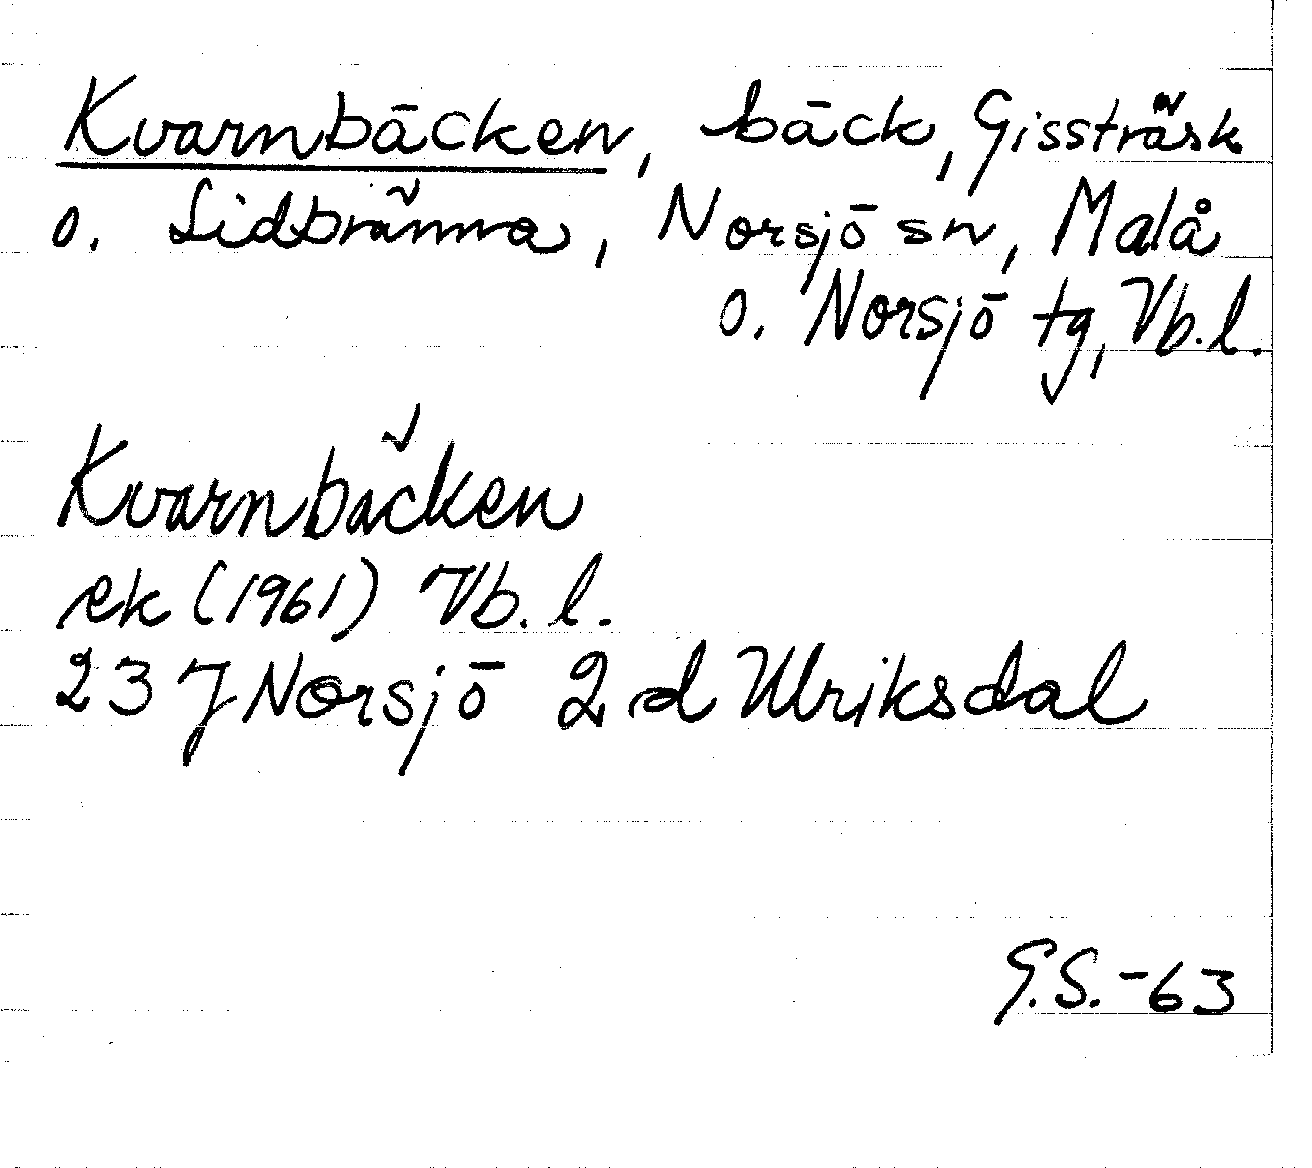 Kvarnbäcken, bäck, Gissträsk
o. Lidbränna, Norsjö sn, Malå
o. Norsjö tg, Vb.l.
Kvarnbäcken
ek (1961) Vb. l.
23 J Norsjö 2 d Ulriksdal
G.S.-63